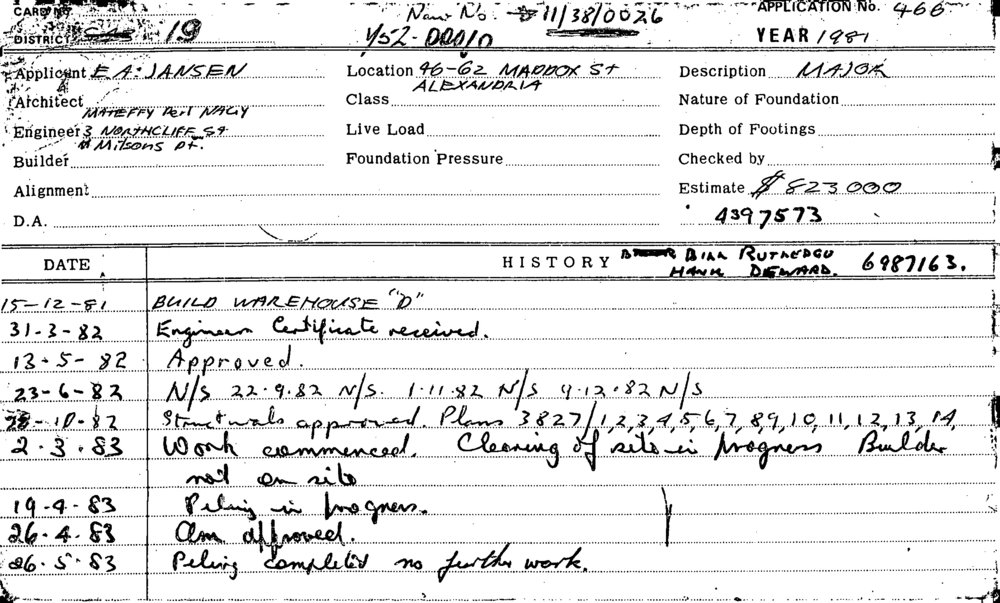 CARD No. New No. 11/38/0026 APPLICATION No. 466
DISTRICT 19 452-00010 YEAR 1981
Applicant E.A. JANSEN Location 46-62 MADDOX St Description MAJOR
ALEXANDRIA
Architect Class Nature of Foundation
MATEFFY Perl NAGY
Engineer 3 NORTHCLIFF St Live Load Depth of Footings
Milsons Pt.
Builder Foundation Pressure Checked by
Alignment Estimate $ 823 000
D.A. 4397573
DATE HISTORY BILL 6987163.
HANK
15-12-81 BUILD WAREHOUSE "D"
31-3-82 Engineers Certificate received.
13-5-82 Approved.
23-6-82 N/S 22.9.82 N/S. 1.11.82 N/S 9.12.82 N/S
28-10-82 Structurals approved. Plans 3827/1,2,3,4,5,6,7,8,9,10,11,12,13,14,
2.3.83 Work commenced. Clearing of site in progress Builder
not on site
19-4-83 Piling in progress.
26.4.83 approved.
26.5.83 Piling completed no further work.